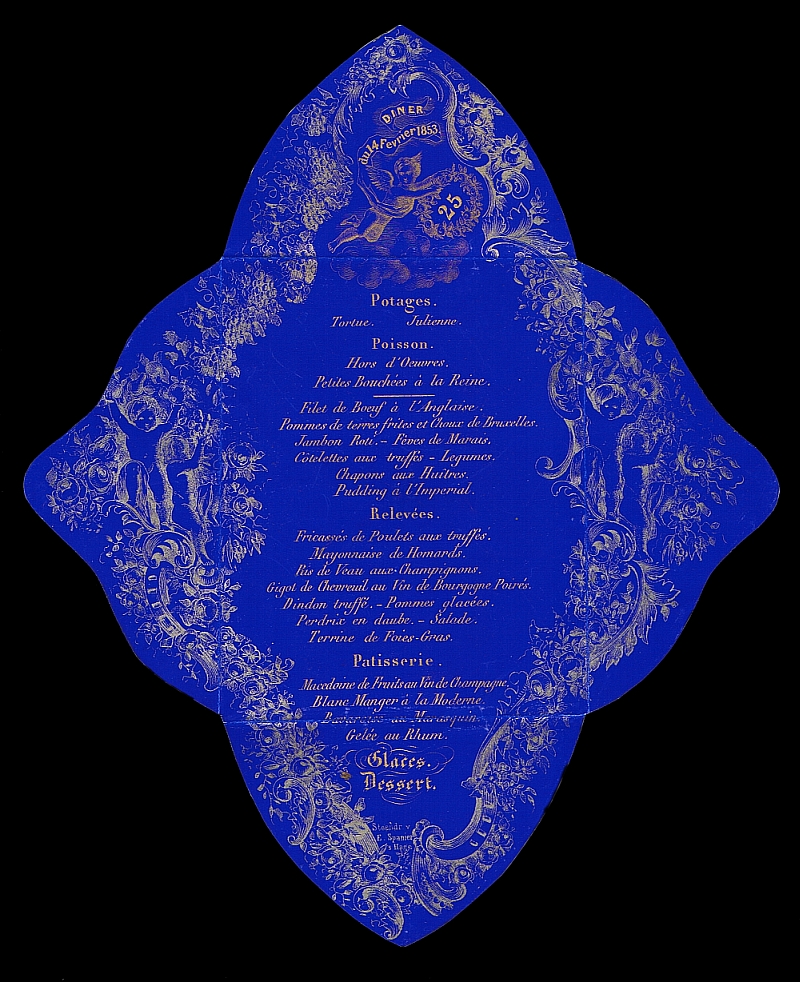 DINER
du 14 Fevrier 1853
25
Potages.
Tortue. Julienne.
Poisson.
Hors d'Oeuvres.
Petites Bouchées à la Reine.
Filet de Boeuf à l'Anglaise.
Pommes de terres frites et Choux de Bruxelles.
Jambon Roti. - Féves de Marais.
Côtelettes aux truffés - Legumes.
Chapons aux Huîtres.
Pudding à l'Imperial.
Relevées.
Fricassés de Poulets aux truffés.
Mayonnaise de Homards.
Ris de Veau aux Champignons.
Gigot de Chevreuil au Vin de Bourgogne Poirés.
Dindon truffé. - Pommes glacées.
Perdrix en daube. - Salade.
Terrine de Foies-Gras.
Patisserie.
Macedoine de Fruits au Vin de Champagne.
Blanc Manger à la Moderne.
au Marasquin.
Gelée au Rhum.
Glaces.
Dessert.
Stechdr v
E. Spanier
s Hage